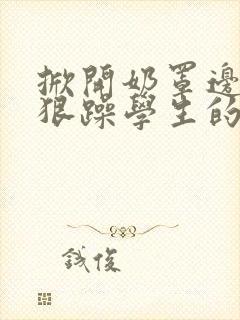 掀開奶罩邊
狠躁學生的
誠俊